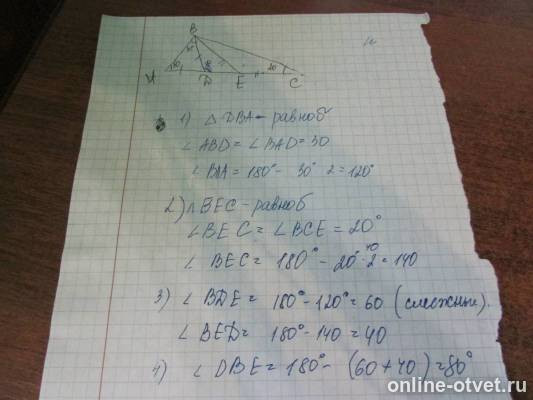 B
30
20
A D E C
1) △ DBA - равноб
∠ ABD = ∠ BAD = 30
∠ BDA = 180° - 30° · 2 = 120°
2) △ BEC - равноб
∠ BEC = ∠ BCE = 20°
40
∠ BEC = 180° - 20° · 2 = 140
3) ∠ BDE = 180° - 120° = 60 (смежные).
∠ BED = 180° - 140 = 40
4) ∠ DBE = 180° - (60 + 40) = 80°
online-otvet.ru